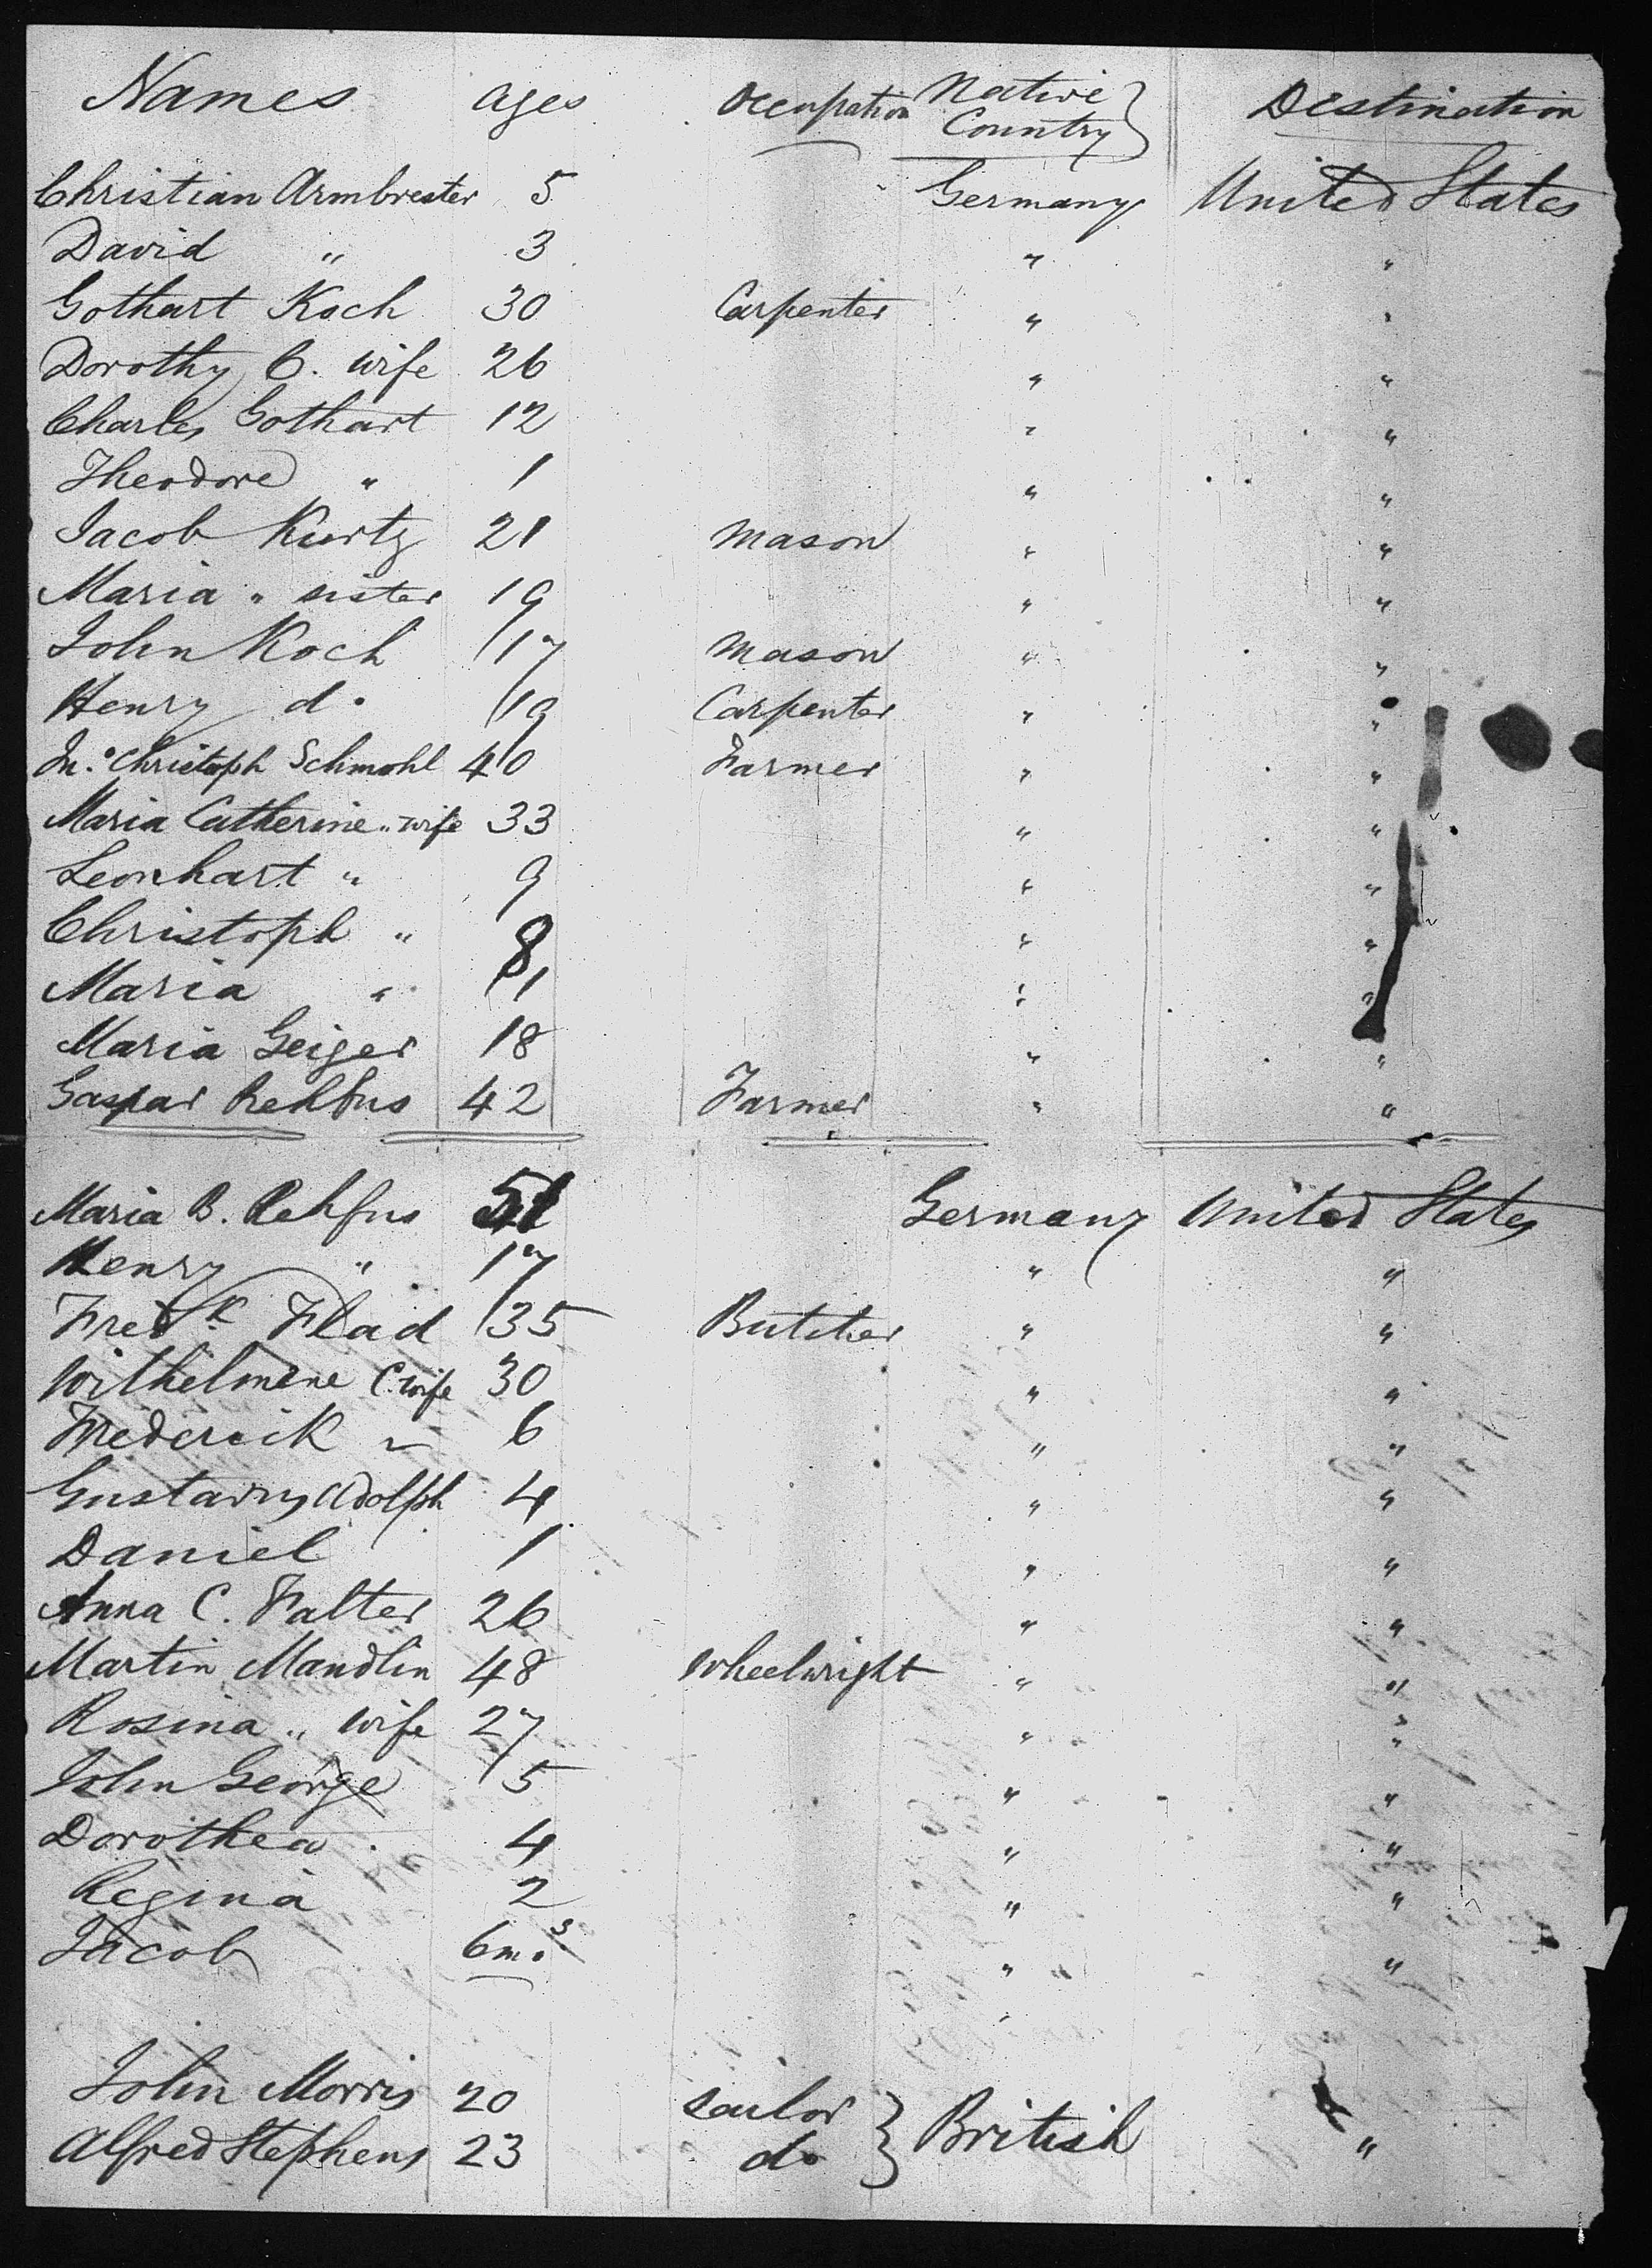 Names ages Occupation Native Country } Destination
Christian Armbrester 5 Germany United States
David " 3 " "
Gothart Koch 30 Carpenter " "
Dorothy C. wife 26 " "
Charles Gothart 12 " "
Theodore " 1 " "
Jacob Kurtz 21 Mason " "
Maria " sister 19 " "
John Koch 17 Mason " "
Henry do 19 Carpenter " "
Jno. Christoph Schmohl 40 Farmer " "
Maria Catherine " wife 33 " "
Leonhart " 9 " "
Christoph " 8 " "
Maria " 1 " "
Maria Geiger 18 " "
Gaspar Rehfus 42 Farmer " "
Maria B. Rehfus 51 Germany United States
Henry " 17 " "
Fredk. Flad 35 Butcher " "
Wilhelmine C. wife 30 " "
Frederick " 6 " "
Gustavus Adolph 4 " "
Daniel 1 " "
Anna C. Falter 26 " "
Martin Mandlin 48 Wheelwright " "
Rosina " wife 27 " "
John George 5 " "
Dorothea 4 " "
Regina 2 " "
Jacob 6 mos " "
John Morris 20 sailor } British
Alfred Stephens 23 do "